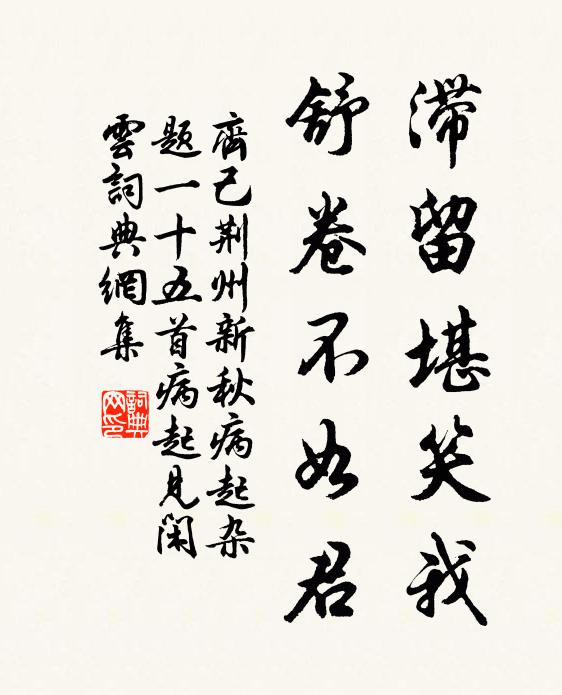 滞留堪笑我
舒卷不如君
齊己荆州新秋病起杂
题一十五首病起見闲
雲詞典網集
詞典网印